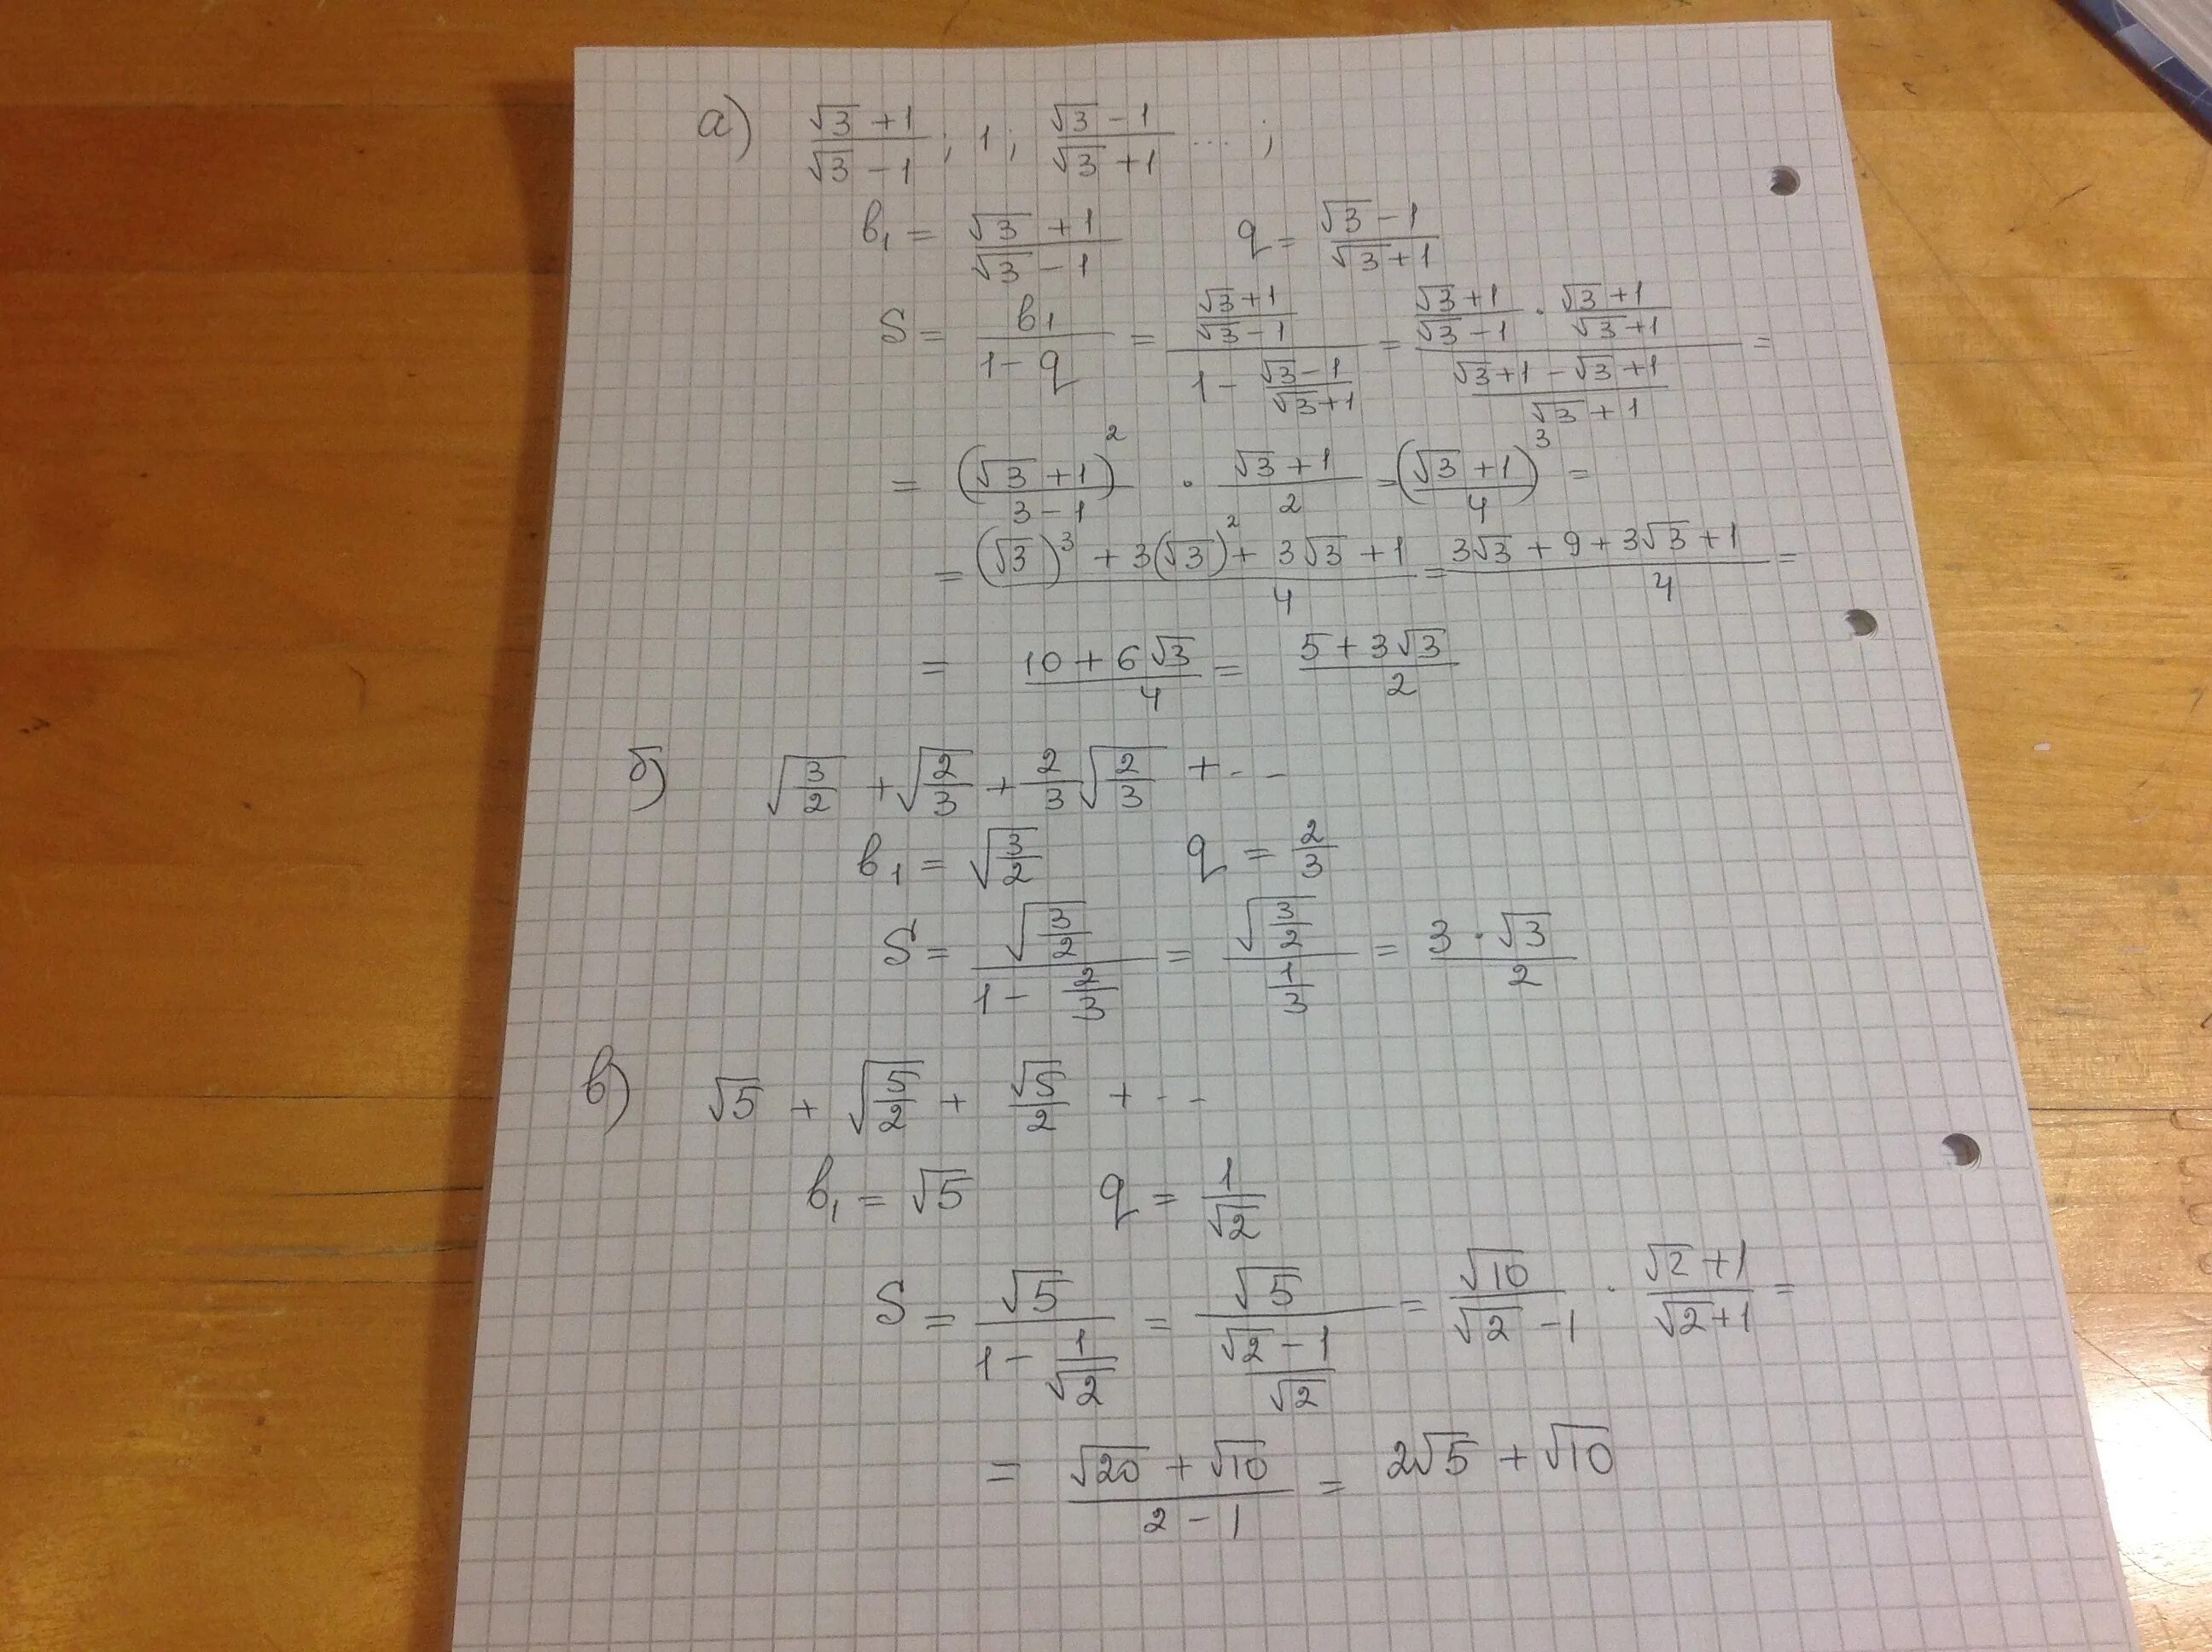 а) (√3 + 1)/(√3 − 1); 1; (√3 − 1)/(√3 + 1) ... ;
b₁ = (√3 + 1)/(√3 − 1) q = (√3 − 1)/(√3 + 1)
S = b₁/(1 − q) = ((√3 + 1)/(√3 − 1))/(1 − (√3 − 1)/(√3 + 1)) = ((√3 + 1)/(√3 − 1) · (√3 + 1)/(√3 + 1))/((√3 + 1 − √3 + 1)/(√3 + 1)) =
= (√3 + 1)²/(3 − 1) · (√3 + 1)/2 = (√3 + 1)³/4 =
= ((√3)³ + 3(√3)² + 3√3 + 1)/4 = (3√3 + 9 + 3√3 + 1)/4 =
= (10 + 6√3)/4 = (5 + 3√3)/2
б) √(3/2) + √(2/3) + 2/3 √(2/3) + - -
b₁ = √(3/2) q = 2/3
S = √(3/2)/(1 − 2/3) = √(3/2)/(1/3) = (3 · √3)/2
в) √5 + √(5/2) + √5/2 + - -
b₁ = √5 q = 1/√2
S = √5/(1 − 1/√2) = √5/((√2 − 1)/√2) = √10/(√2 − 1) · (√2 + 1)/(√2 + 1) =
= (√20 + √10)/(2 − 1) = 2√5 + √10